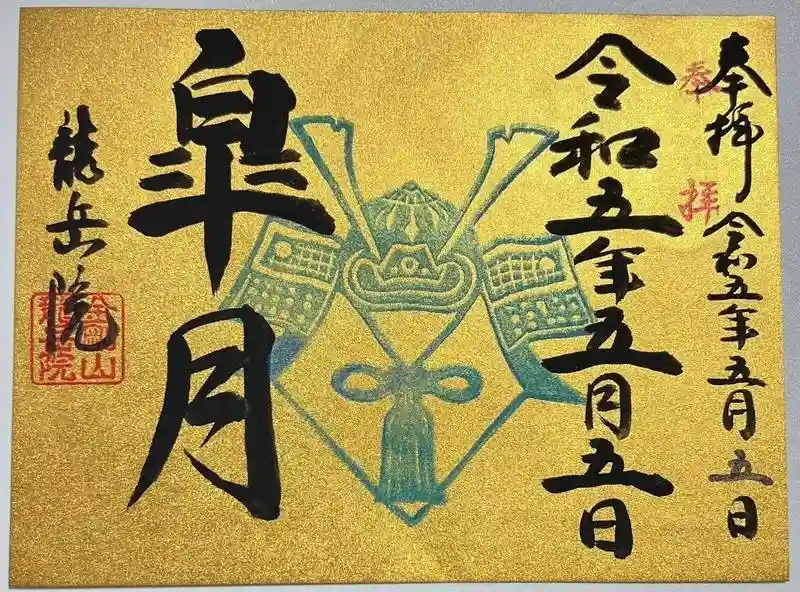 奉拝 令和五年五月五日
奉拝
令和五年五月五日
皐月
龍岳院
金岡山
龍岳院